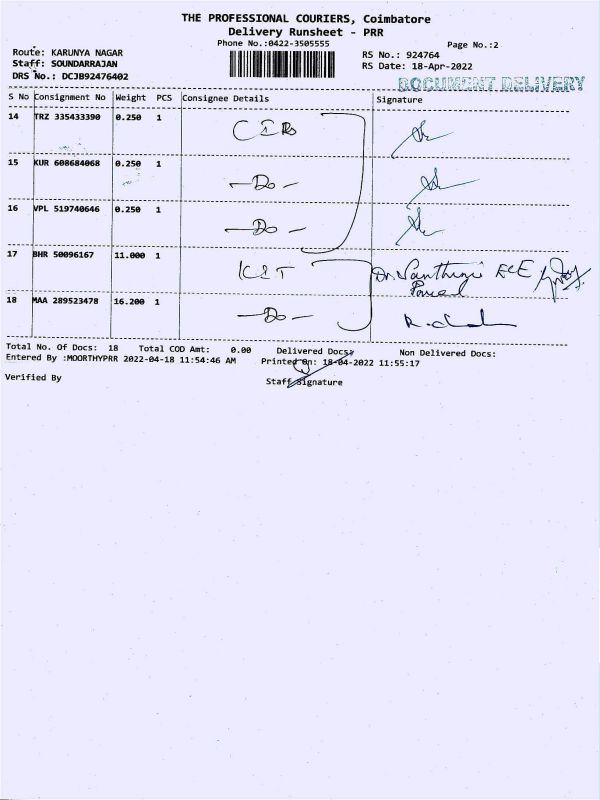 THE PROFESSIONAL COURIERS, Coimbatore
Delivery Runsheet - PRR
Phone No.:0422-3505555
Page No.:2
Route: KARUNYA NAGAR
RS No.: 924764
Staff: SOUNDARRAJAN
RS Date: 18-Apr-2022
DRS No.: DCJB92476402
DOCUMENT DELIVERY
S No Consignment No Weight PCS Consignee Details Signature
14 TRZ 335433390 0.250 1
15 KUR 608684068 0.250 1 -Do-
16 VPL 519740646 0.250 1 -Do-
17 BHR 50096167 11.000 1 ECE
18 MAA 289523478 16.200 1 -Do-
Total No. Of Docs: 18 Total COD Amt: 0.00 Delivered Docs: Non Delivered Docs:
Entered By :MOORTHYPRR 2022-04-18 11:54:46 AM Printed On: 18-04-2022 11:55:17
Verified By
Staff Signature